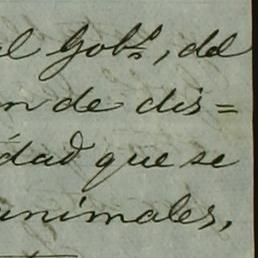 el Gobº, del
n de dis=
idad que se
animales,